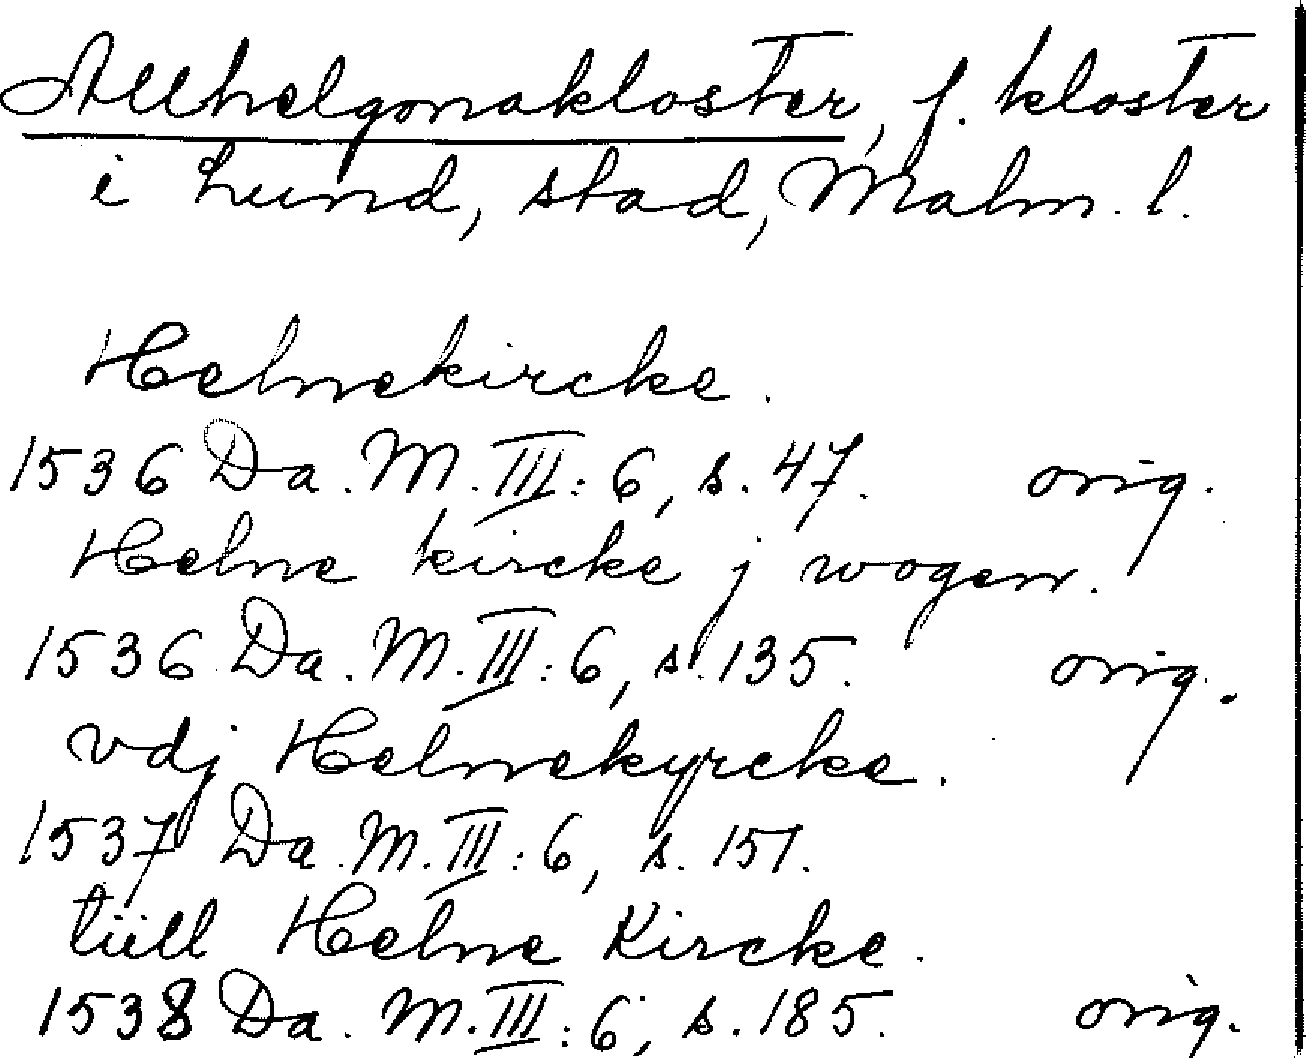 Allhelgonakloster, f. kloster
i Lund, stad, Malm. l.
Helnekircke.
1536 Da. M. III: 6, s. 47. orig.
Helne kircke j wogen.
1536 Da. M. III: 6, s. 135. orig.
vdj Helnekyrcke.
1537 Da. M. III: 6, s. 151.
tiill Helne Kircke.
1538 Da. M. III: 6, s. 185. orig.